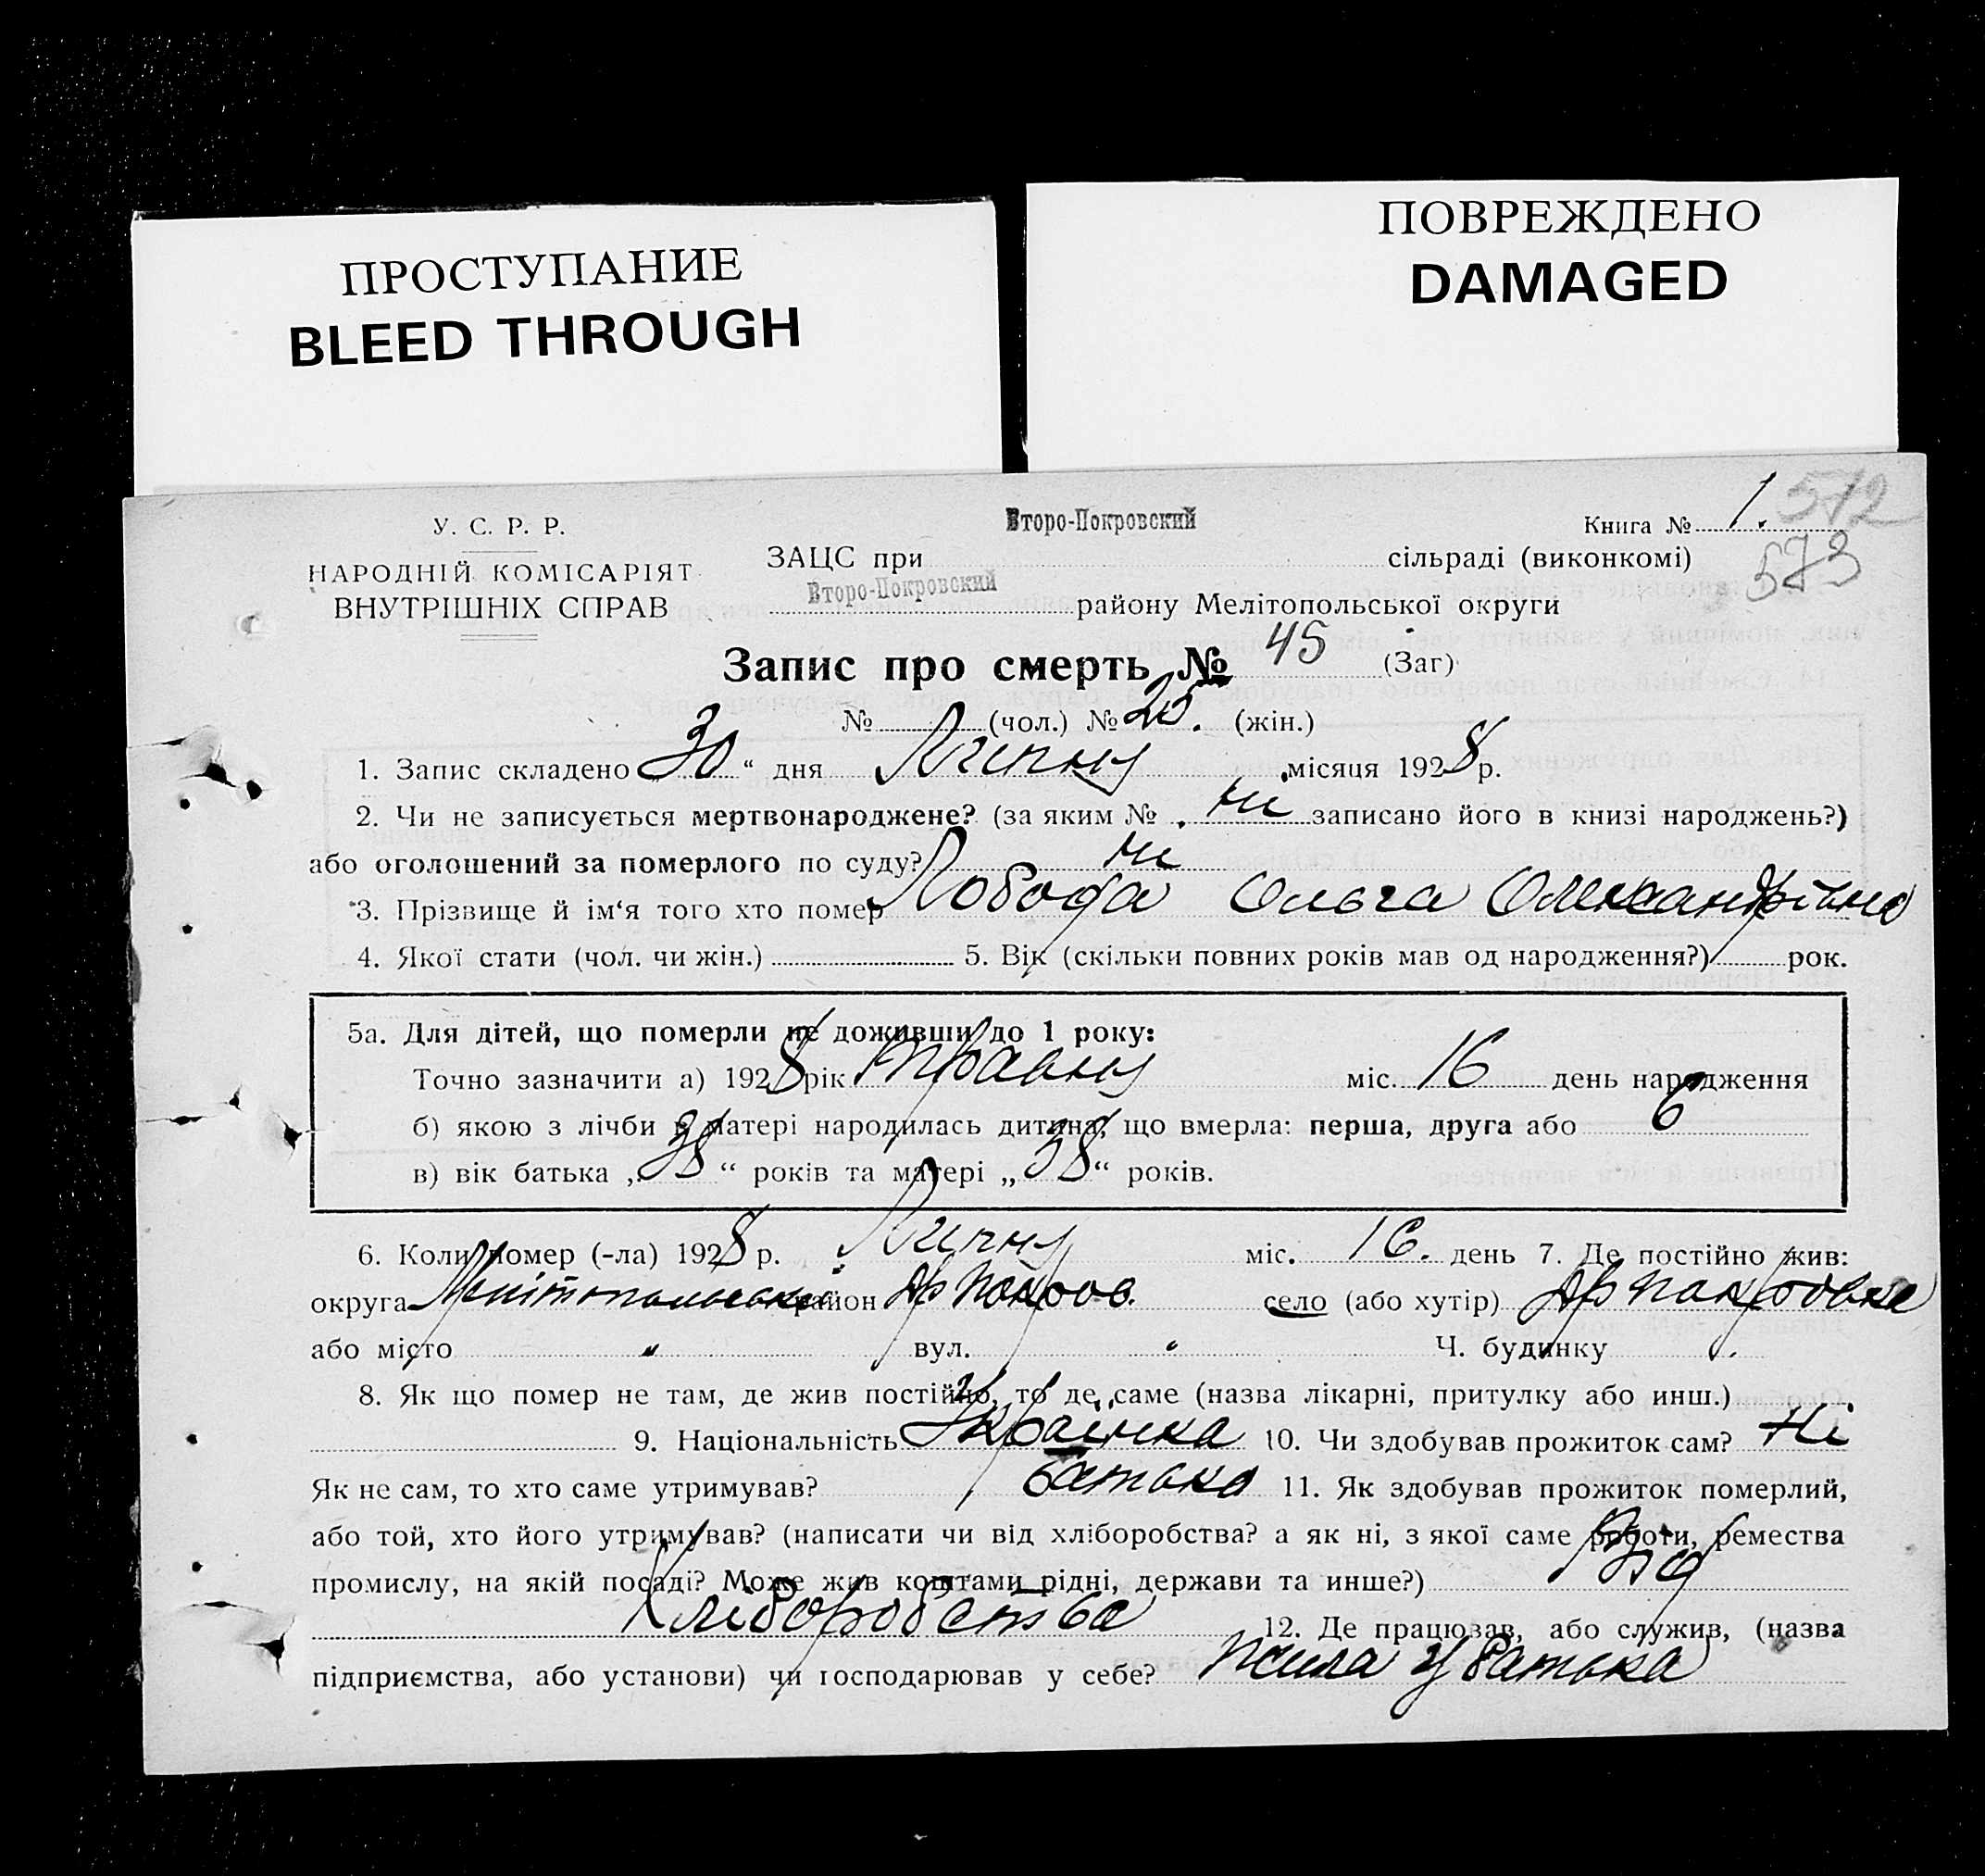 ПРОСТУПАНИЕ
BLEED THROUGH
ПОВРЕЖДЕНО
DAMAGED
У. С. Р. Р.
НАРОДНІЙ КОМІСАРІЯТ
ВНУТРІШНІХ СПРАВ
Второ-Покровский
Книга № 1. 572
573
ЗАЦС при сільраді (виконкомі)
Второ-Покровский району Мелітопольської округи
Запис про смерть № 45 (Заг)
№ (чол.) № 25. (жін.)
1. Запис складено „30“ дня Липня місяця 1928 р.
2. Чи не записується мертвонароджене? (за яким № ні записано його в книзі народжень?)
або оголошений за померлого по суду? ні
3. Прізвище й ім‘я того хто помер Лобода Ольга Олександрівна
4. Якої стати (чол. чи жін.) 5. Вік (скільки повних років мав од народження?) рок.
5а. Для дітей, що померли не доживши до 1 року:
Точно зазначити а) 1928 рік Травня міс. 16 день народження
б) якою з лічби у матері народилась дитина, що вмерла: перша, друга або 6
в) вік батька „38“ років та матері „38“ років.
6. Коли помер (-ла) 1928 р. Липня міс. 16. день 7. Де постійно жив:
округа Мелітопольська район Др Покров. село (або хутір) Др Покровка
або місто " вул. " Ч. будинку
8. Як що помер не там, де жив постійно, то де саме (назва лікарні, притулку або инш.)
9. Національність Українка 10. Чи здобував прожиток сам? Ні
Як не сам, то хто саме утримував? батько 11. Як здобував прожиток померлий,
або той, хто його утримував? (написати чи від хліборобства? а як ні, з якої саме роботи, ремества
промислу, на якій посаді? Може жив коштами рідні, держави та инше?) Від
Хліборобства 12. Де працював, або служив, (назва
підприємства, або установи) чи господарював у себе? жила у батька